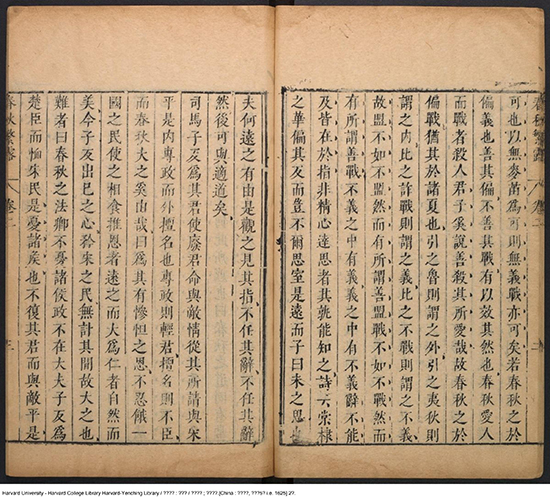 春秋繁露 卷二 二
可也以無麥苗為可則無義戰亦可矣若春秋之於
偏義也善其偏不善其戰有以效其然也春秋愛人
而戰者殺人君子奚說善殺其所愛哉故春秋之於
偏戰猶其於諸夏也引之魯則謂之外引之夷狄則
謂之內比之詐戰則謂之義比之不戰則謂之不義
故盟不如不盟然而有所謂善盟戰不如不戰然而
有所謂善戰不義之中有義義之中有不義辭不能
及皆在於指非精心達思者其孰能知之詩云棠棣
之華偏其反而豈不爾思室是遠而子曰未之思
夫何遠之有由是觀之見其指不任其辭不任其辭
然後可與適道矣
司馬子反為其君使廢君命與敵情從其所請與宋
平是內專政而外擅名也專政則輕君擅名則不臣
而春秋大之奚由哉曰為其有慘怛之恩不忍餓一
國之民使之相食推恩者遠之而大為仁者自然而
美今子反出已之心矜宋之民無計其間故大之也
難者曰春秋之法卿不憂諸侯政不在大夫子反為
楚臣而恤宋民是憂諸侯也不復其君而與敵平是
春秋繁露 卷二 三
Harvard University - Harvard College Library Harvard-Yenching Library / ???? : ??? / ???? ; ???? [China : ????, ???5? i.e. 1625] 27.